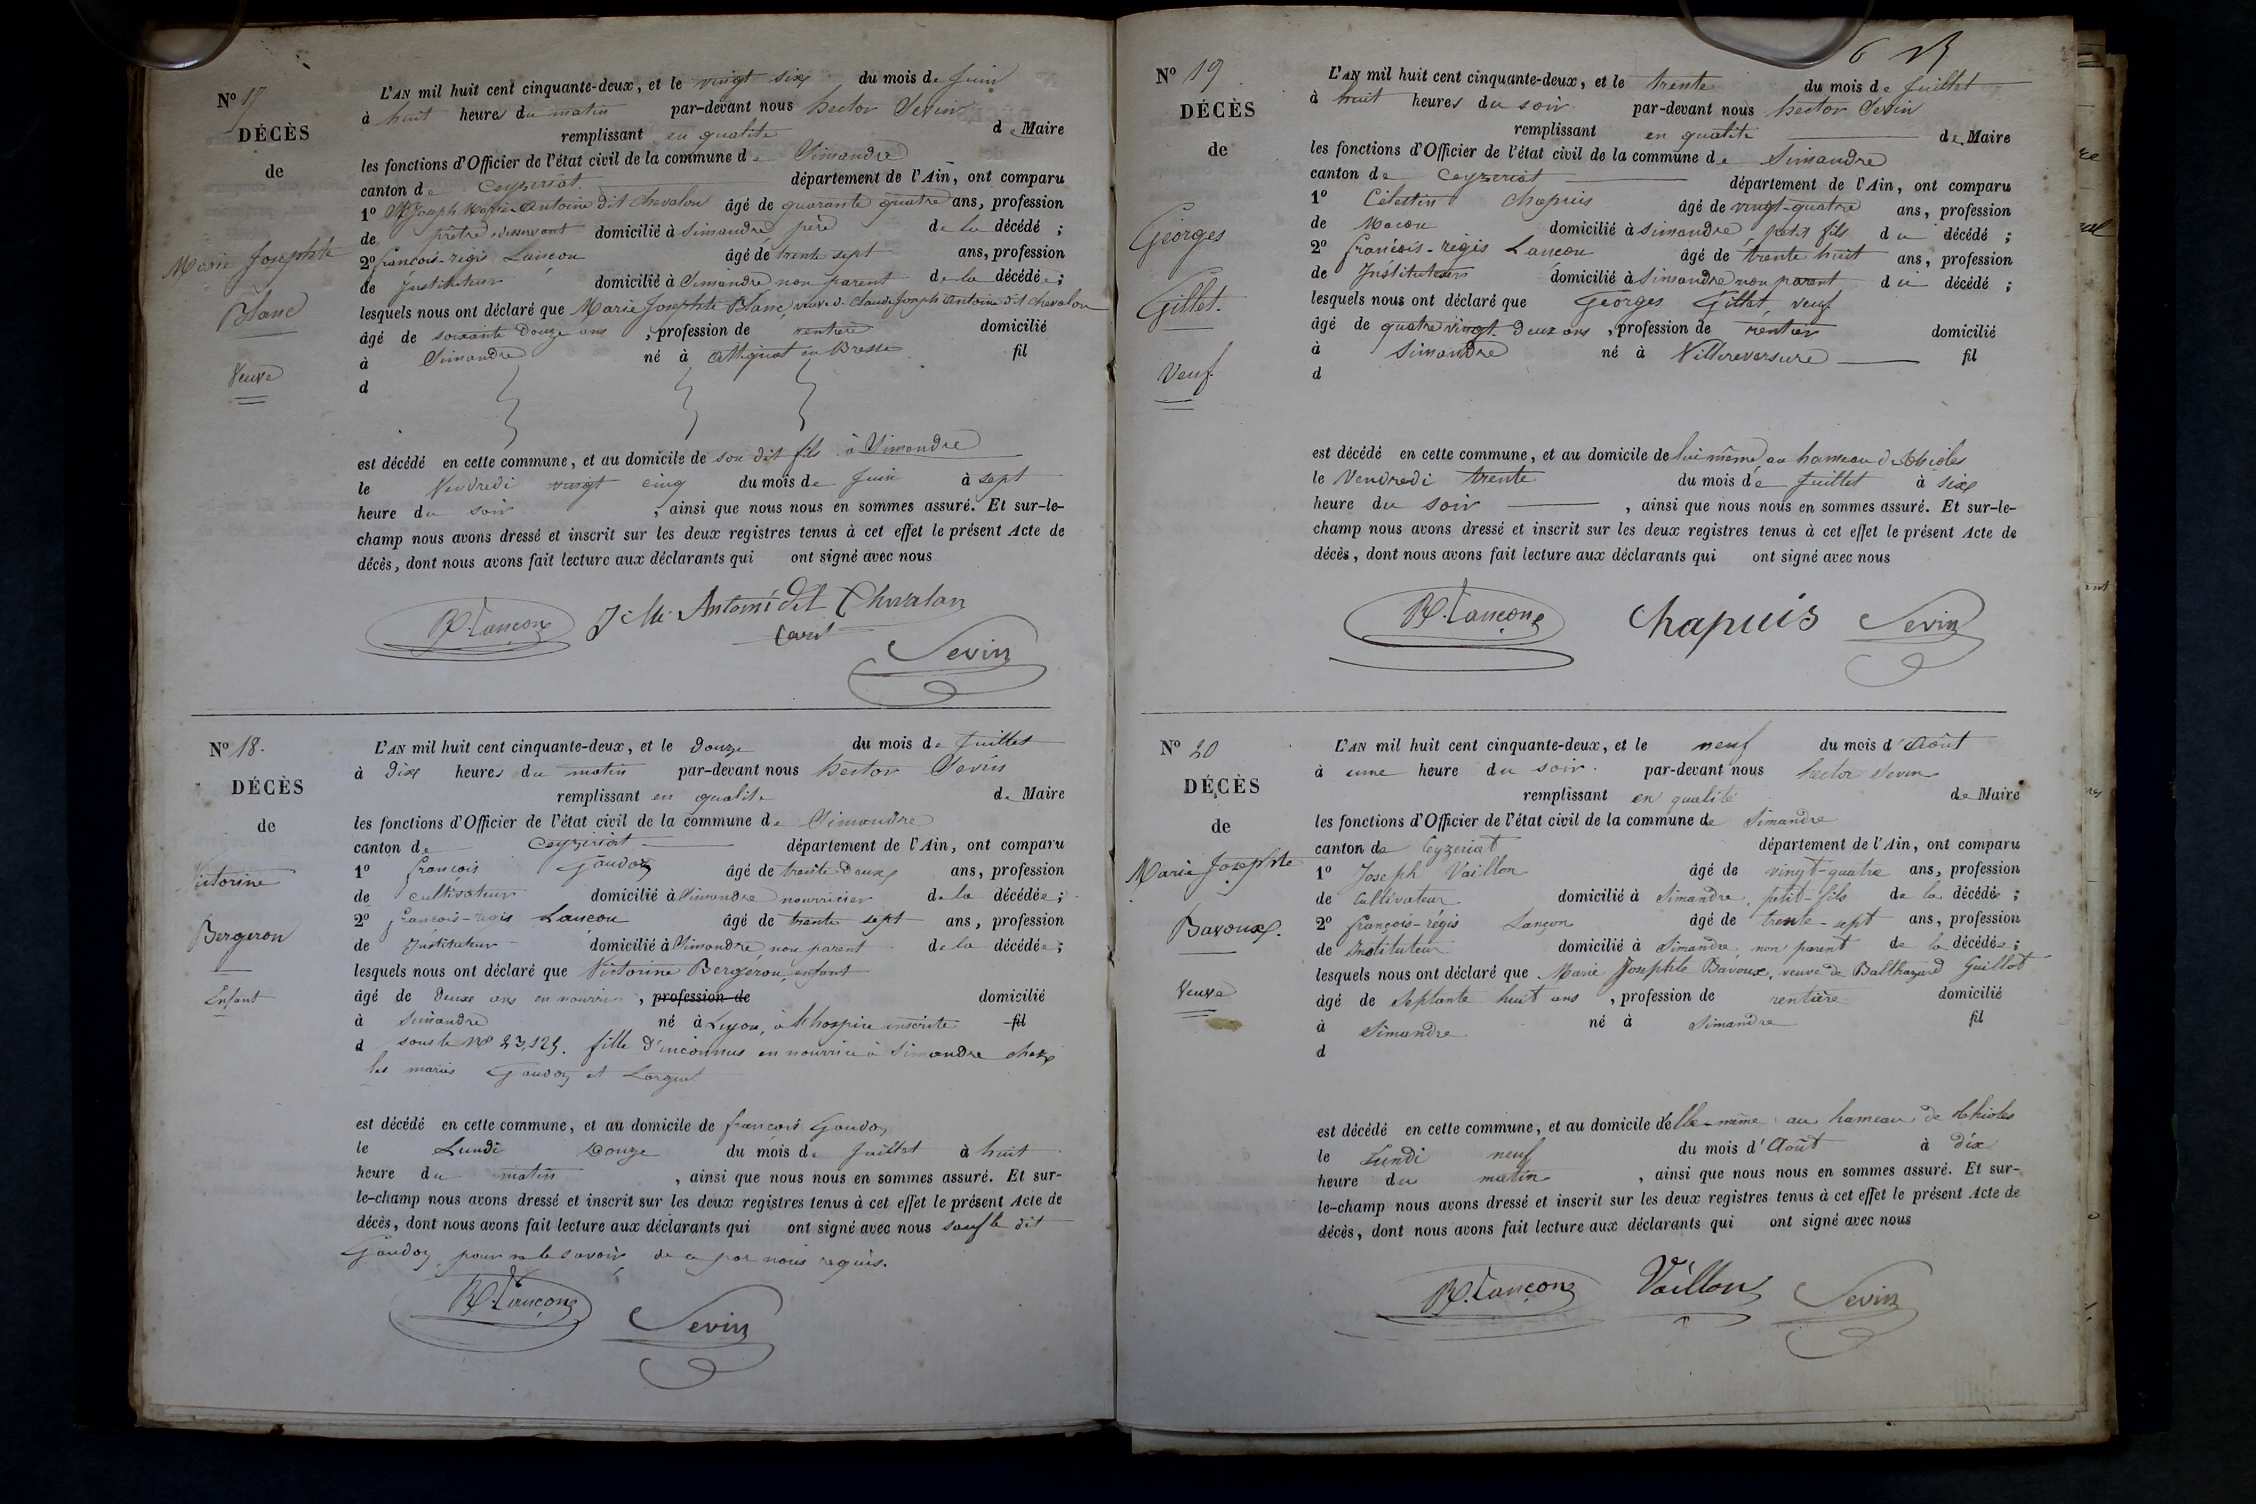 Nº 17
DÉCÈS
de
Marie Josephte
Blanc
Veuve
L'AN mil huit cent cinquante-deux, et le vingt six du mois de Juin
à huit heures du matin par-devant nous hector Sevin
remplissant en qualité de Maire
les fonctions d'Officier de l'état civil de la commune de Simandre
canton de Ceyzeriat département de l'Ain, ont comparu
1º Joseph Marie Antoine dit Chevalon âgé de quarante quatre ans, profession
de prêtre desservant domicilié à Simandre de la décédé ;
2º francois-regis Lançon âgé de trente sept ans, profession
de Instituteur domicilié à Simandre non parent de la décédée ;
lesquels nous ont déclaré que Marie Josephte Blanc, veuve d. Claude Joseph Antoine dit Chevalon
âgé de soixante Douze ans , profession de rentiere domicilié
à Simandre né à Attignat en Bresse fil
d
est décédé en cette commune, et au domicile de son dit fils à Simandre
le Vendredi vingt cinq du mois de Juin à sept
heure du soir , ainsi que nous nous en sommes assuré. Et sur-le-
champ nous avons dressé et inscrit sur les deux registres tenus à cet effet le présent Acte de
décès, dont nous avons fait lecture aux déclarants qui ont signé avec nous
R. Lançon J. M. Antoine dit Chevalon
curé
Sevin
Nº 18.
DÉCÈS
de
Victorine
Bergeron
Enfant
L'AN mil huit cent cinquante-deux, et le Douze du mois de Juillet
à Dix heures du matin par-devant nous hector Sevin
remplissant en qualité de Maire
les fonctions d'Officier de l'état civil de la commune de Simandre
canton de Ceyzeriat département de l'Ain, ont comparu
1º françois Gaudoz âgé de trente Deux ans, profession
de cultivateur domicilié à Simandre nourricier de la décédée ;
2º francois-regis Lançon âgé de trente sept ans, profession
de Instituteur domicilié à Simandre non parent de la décédée ;
lesquels nous ont déclaré que Victorine Bergeron, enfant
âgé de Deux ans en nourrice , profession de domicilié
à Simandre né à Lyon, à l'hospice inscrite fil
d sous le Nº 23,125. fille d'inconnus en nourrice à Simandre chez
les mariés Gaudoz et Lorguet
est décédé en cette commune, et au domicile de francois Gaudoz
le Lundi Douze du mois de Juillet à huit
heure du matin , ainsi que nous nous en sommes assuré. Et sur-
le-champ nous avons dressé et inscrit sur les deux registres tenus à cet effet le présent Acte de
décès, dont nous avons fait lecture aux déclarants qui ont signé avec nous sauf le dit
Gaudoz pour ne le savoir de ce par nous requis.
R. Lançon
Sevin
Nº 19
DÉCÈS
de
Georges
Gillet.
Veuf.
L'AN mil huit cent cinquante-deux, et le trente du mois de Juillet
à huit heures du soir par-devant nous hector Sevin
remplissant en qualité de Maire
les fonctions d'Officier de l'état civil de la commune de Simandre
canton de Ceyzeriat département de l'Ain, ont comparu
1º Célestin Chapuis âgé de vingt-quatre ans, profession
de Macon domicilié à Simandre petit fils du décédé ;
2º francois-regis Lançon âgé de trente huit ans, profession
de Instituteur domicilié à Simandre non parent du décédé ;
lesquels nous ont déclaré que Georges Gillet, veuf
âgé de quatre vingt Deux ans , profession de rentier domicilié
à Simandre né à Villereversure fil
d
est décédé en cette commune, et au domicile de lui même au hameau de Thioles
le Vendredi trente du mois de Juillet à six
heure du soir , ainsi que nous nous en sommes assuré. Et sur-le-
champ nous avons dressé et inscrit sur les deux registres tenus à cet effet le présent Acte de
décès, dont nous avons fait lecture aux déclarants qui ont signé avec nous
R. Lançon Chapuis Sevin
Nº 20
DÉCÈS
de
Marie Josephte
Bavoux.
Veuve
L'AN mil huit cent cinquante-deux, et le neuf du mois d'Août
à une heure du soir par-devant nous hector Sevin
remplissant en qualité de Maire
les fonctions d'Officier de l'état civil de la commune de Simandre
canton de Ceyzeriat département de l'Ain, ont comparu
1º Joseph Vaillon âgé de vingt-quatre ans, profession
de Cultivateur domicilié à Simandre, petit-fils de la décédée ;
2º françois-régis Lançon âgé de trente-sept ans, profession
de Instituteur domicilié à Simandre, non parent de la décédée ;
lesquels nous ont déclaré que Marie Josephte Bavoux, veuve de Balthazard Guillot
âgé de Septante huit ans , profession de rentière domicilié
à Simandre né à Simandre fil
d
est décédé en cette commune, et au domicile d'elle-même au hameau de Thioles
le Lundi neuf du mois d'Août à dix
heure du matin , ainsi que nous nous en sommes assuré. Et sur-
le-champ nous avons dressé et inscrit sur les deux registres tenus à cet effet le présent Acte de
décès, dont nous avons fait lecture aux déclarants qui ont signé avec nous
R. Lançon Vaillon Sevin